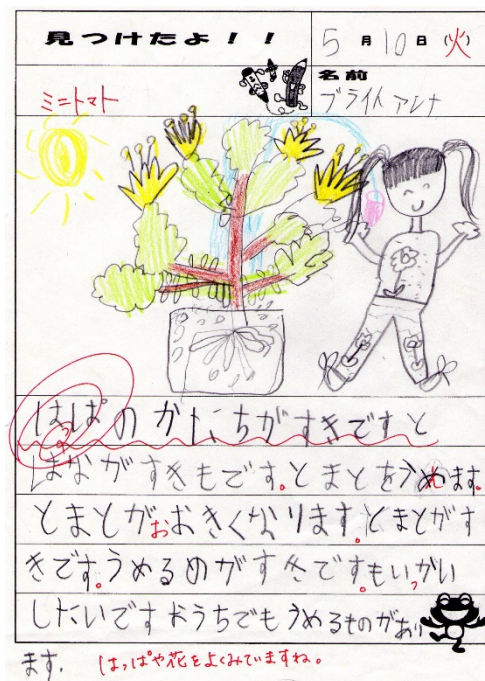 見つけたよ！！
5月10日(火)
ミニトマト
名前
ブライト アレナ
はっぱのかたちがすきですと
はながすきもです。とまとをうめます。
とまとがおおきくなります。とまとがす
きです。うめるのがすきです。もいっかい
したいですおうちでもうめるものがあり
ます.
はっぱや花をよくみていますね。